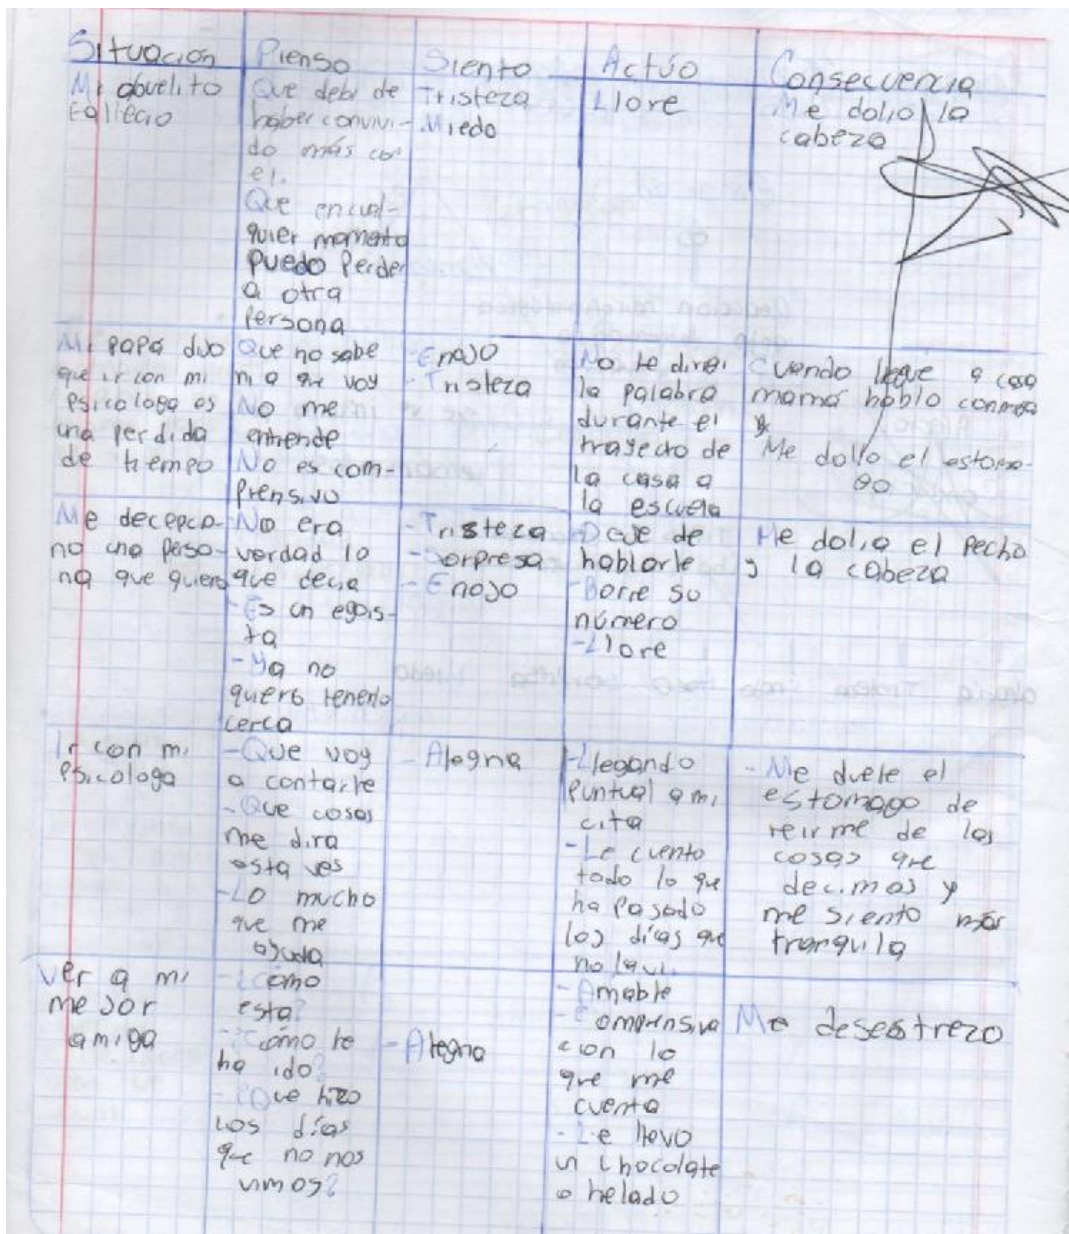 Situación Pienso Siento Actúo Consecuencia
Mi abuelito
fallecio
Que debi de
haber convivi-
do más con
el.
Que en cual-
quier momento
puedo perder
a otra
persona
Tristeza
Miedo
Llore
Me dolio la
cabeza
Mi papá dijo
que ir con mi
psicologa es
una perdida
de tiempo
Que no sabe
ni a que voy
No me
entiende
No es com-
prensivo
- Enojo
- Tristeza
No le diriji
la palabra
durante el
trayecto de
la casa a
la escuela
Cuando llegue a casa
mamá hablo conmigo
y
Me dolio el estoma-
go
Me decepcio-
no una perso-
na que quiero
- No era
verdad lo
que decia
- Es un egois-
ta
- Ya no
quiero tenerlo
cerca
- Tristeza
- Sorpresa
- Enojo
- Deje de
hablarle
- Borre su
número
- Llore
Me dolio el pecho
y la cabeza
Ir con mi
psicologa
- Que voy
a contarle
- Que cosas
me dira
esta ves
- Lo mucho
que me
ayuda
- Alegria
- Llegando
puntual a mi
cita
- Le cuento
todo lo que
ha pasado
los días que
no la vi.
- Me duele el
estomago de
reirme de las
cosas que
decimos y
me siento más
tranquila
Ver a mi
mejor
amiga
- ¿Cómo
esta?
- ¿Cómo le
ha ido?
- ¿Que hizo
los días
que no nos
vimos?
- Alegria
- Amable
- Comprensiva
con lo
que me
cuenta
- Le llevo
un chocolate
o helado
Me desestrezo